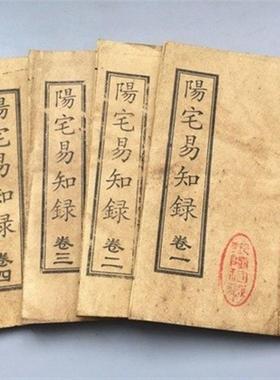 陽宅易知録 卷一
陽宅易知録 卷二
陽宅易知録 卷三
易知録 卷四